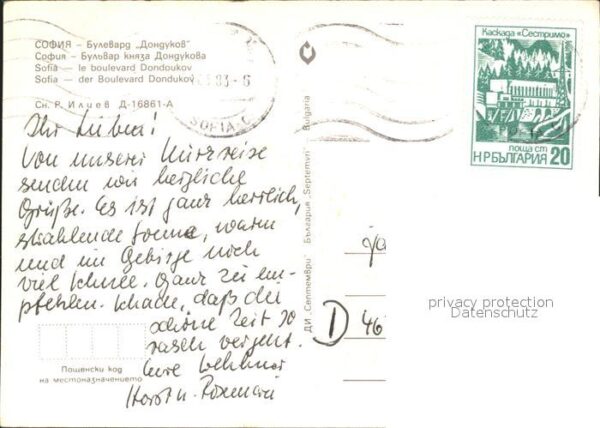 СОФИЯ – Булевард „Дондуков"
София – Бульвар княза Дондукова
Sofia — le boulevard Dondoukov
Sofia — der Boulevard Dondukov
Сн. Р. Илиев Д-16861-А
Ihr Lieben!
Von unserer Kurzreise
senden wir herzliche
Grüße. Es ist ganz herrlich,
strahlende Sonne, warm
und im Gebirge noch
viel Schnee. Ganz zu em-
pfehlen. Schade, daß die
schöne Zeit so
rasch vergeht.
Eure
Horst u. Rosmarie
Пощенски код
на местоназначението
ДИ „Септември" България „Septemvri" Bulgaria
83-
SOFIA-C
Каскада «Сестримо»
поща ст
НР БЪЛГАРИЯ 20
D 46
privacy protection
Datenschutz